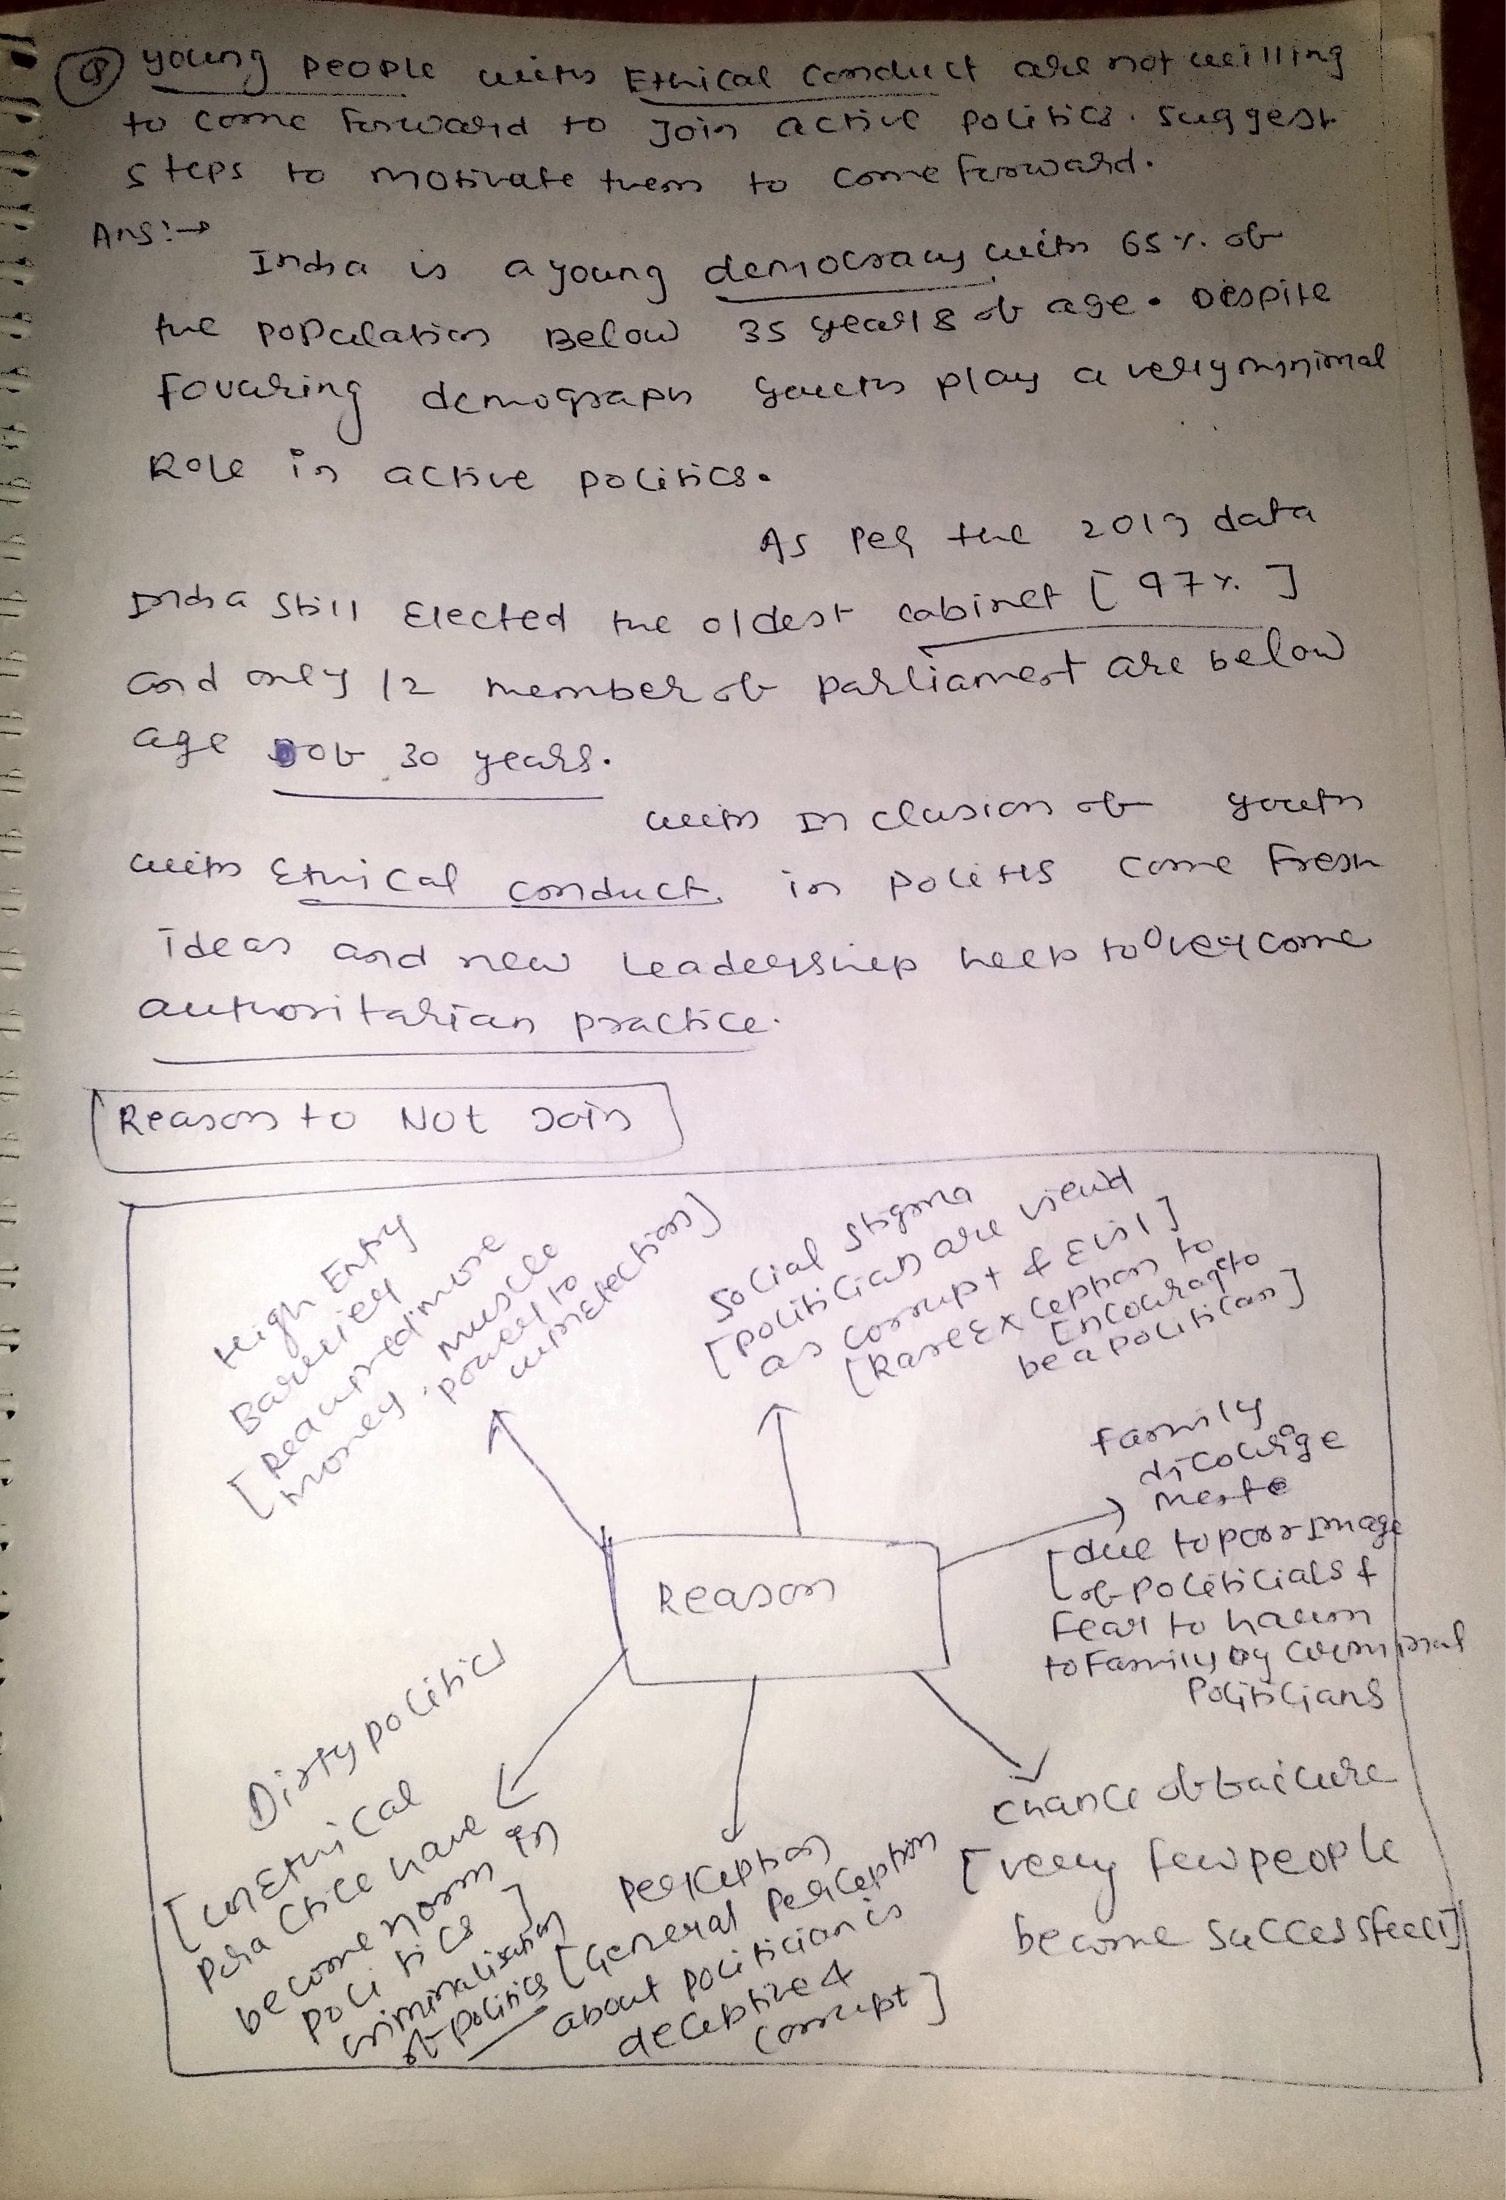 Q young people with Ethical conduct are not willing
to come forward to Join active politics. suggest
steps to motivate them to come forward.
Ans:→
India is a young democracy with 65%. of
the population Below 35 years of age. Despite
fovaring demograph youth play a very minimal
Role in active politics.
As per the 2019 data
India still Elected the oldest cabinet [97%.]
and only 12 member of parliament are below
age of 30 years.
with Inclusion of youth
with Ethical conduct in politis come fresh
ideas and new leadership help to overcome
authoritarian practice.
Reason to Not Join
High Entry
Barrier
[Required more
money, muscle
power to
win Election]
Social stigma
[politician are viewd
as corrupt & Evil]
[Rare Exception to
Encourage to
be a politican]
family
dicourage
ment
[due to poor Image
of politicials &
fear to harm
to Family by criminal
politicians
Reason
Dirty politics
[unEthical
practice have
become norm in
politics]
criminalisation
of politics
perception
[General perception
about politician is
deceptive &
corrupt]
chance of failure
[very few people
become successfull]